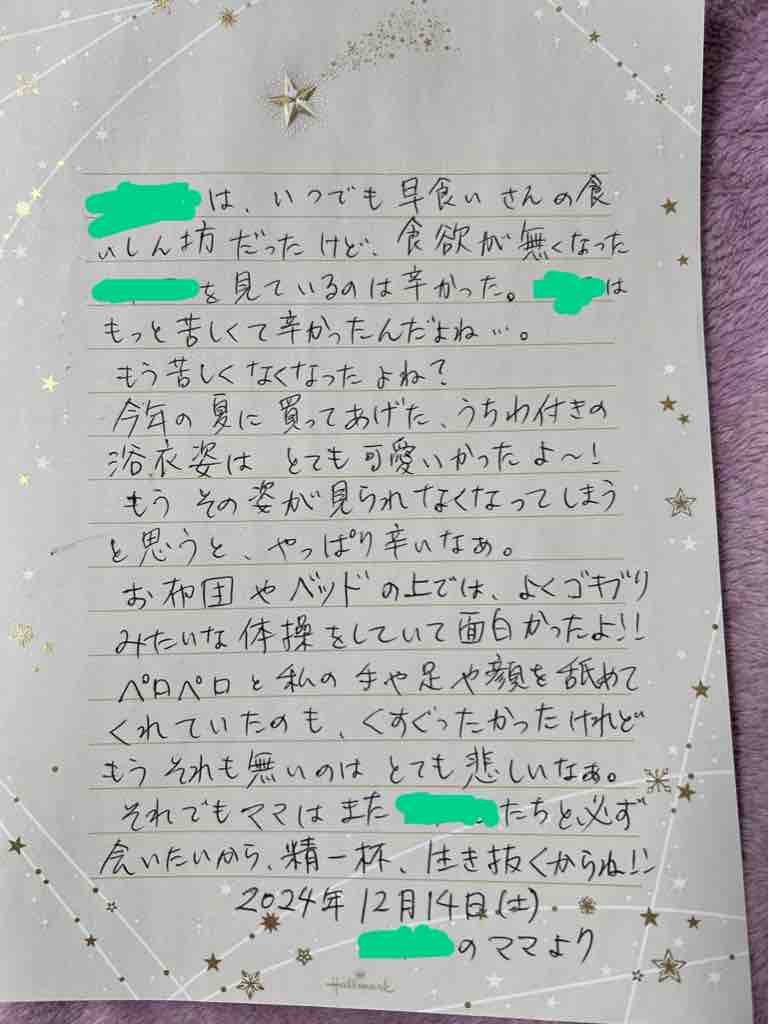 は、いつでも早食いさんの食
いしん坊だったけど、食欲が無くなった
を見ているのは辛かった。は
もっと苦しくて辛かったんだよね…。
もう苦しくなくなったよね?
今年の夏に買ってあげた、うちわ付きの
浴衣姿はとても可愛いかったよ〜!
もうその姿が見られなくなってしまう
と思うと、やっぱり辛いなぁ。
お布団やベッドの上では、よくゴキブリ
みたいな体操をしていて面白かったよ!!
ペロペロと私の手や足や顔を舐めて
くれていたのも、くすぐったかったけれど
もうそれも無いのはとても悲しいなぁ。
それでもママはまたたちと、必ず
会いたいから、精一杯、生き抜くからね!!
2024年12月14日(土)
のママより
Hallmark